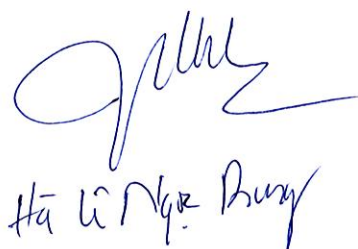 Hà Lê Ngọc Dung